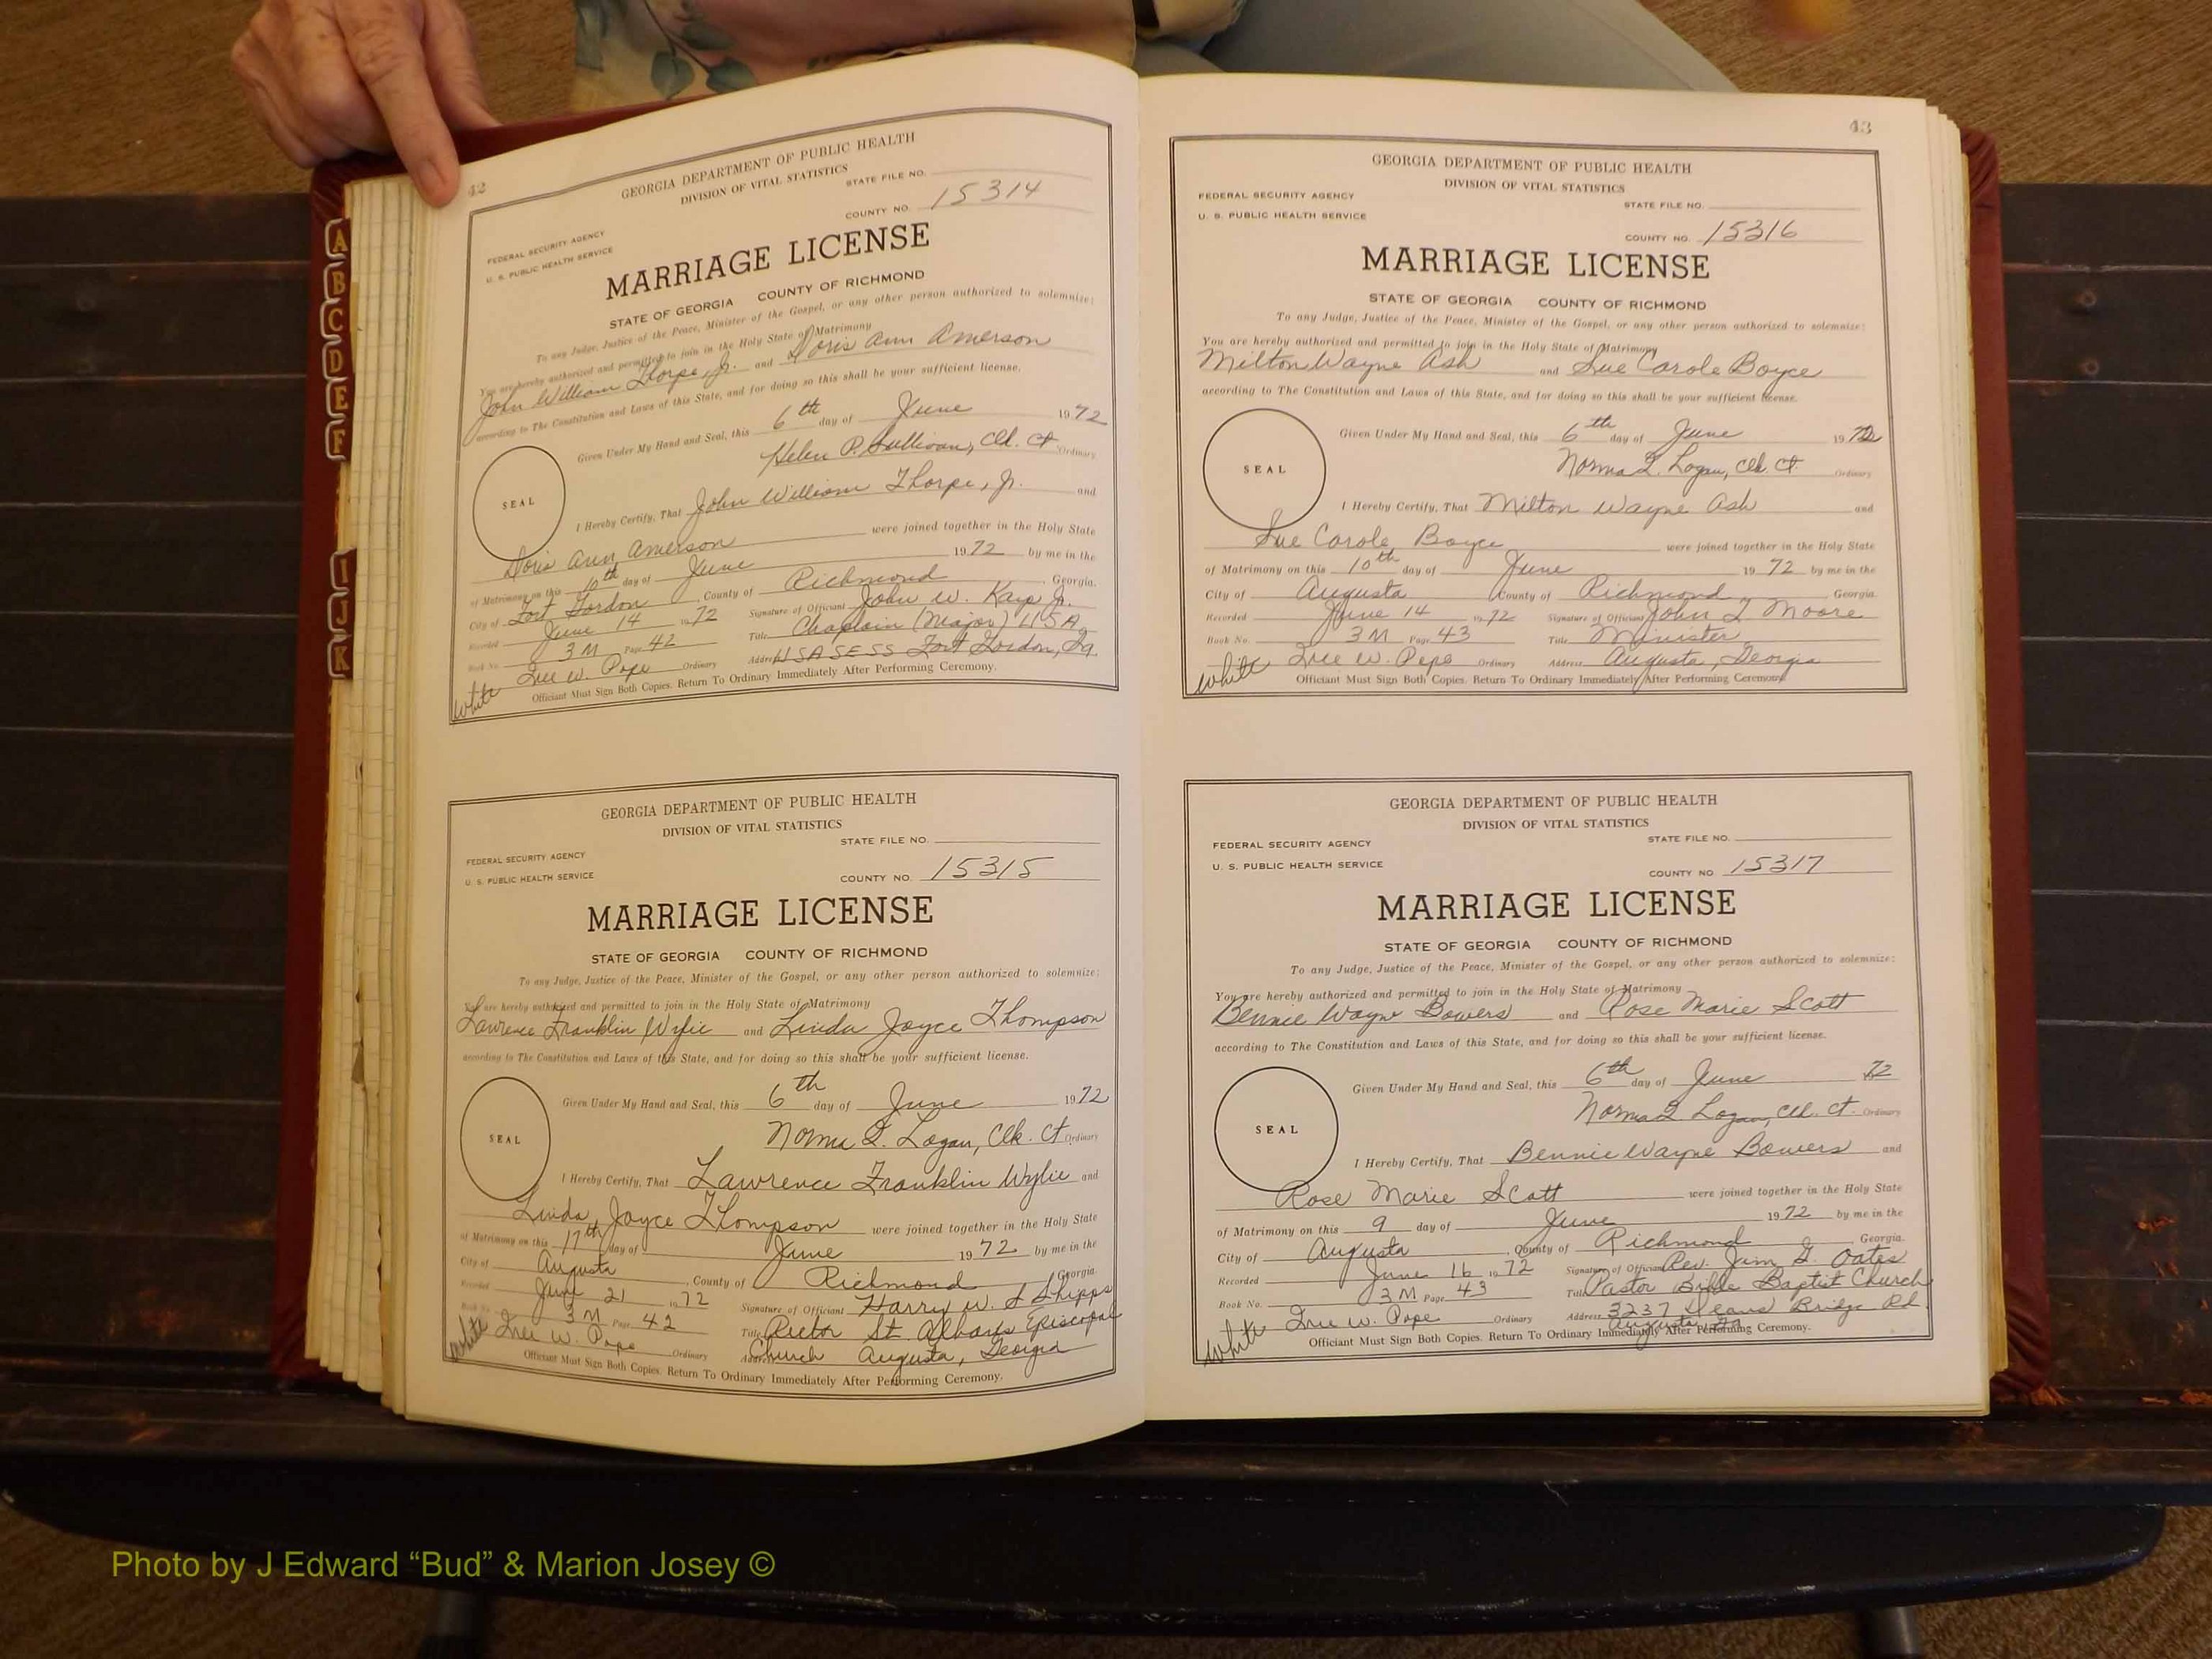 42
GEORGIA DEPARTMENT OF PUBLIC HEALTH
DIVISION OF VITAL STATISTICS
STATE FILE NO.
FEDERAL SECURITY AGENCY
U. S. PUBLIC HEALTH SERVICE
COUNTY NO. 15314
MARRIAGE LICENSE
STATE OF GEORGIA COUNTY OF RICHMOND
To any Judge, Justice of the Peace, Minister of the Gospel, or any other person authorized to solemnize:
You are hereby authorized and permitted to join in the Holy State of Matrimony
John William Thorpe, Jr. and Doris Ann Amerson
according to The Constitution and Laws of this State, and for doing so this shall be your sufficient license.
Given Under My Hand and Seal, this 6th day of June 1972
Helen P. Sullivan, Clk. Ct. Ordinary
SEAL
I Hereby Certify, That John William Thorpe, Jr. and
Doris Ann Amerson were joined together in the Holy State
of Matrimony on this 10th day of June 1972 by me in the
City of Fort Gordon, County of Richmond, Georgia.
Recorded June 14 1972 Signature of Officiant John W. Kaye Jr.
Book No. 3M Page 42 Title Chaplain (Major) USA
W. Pope Ordinary Address USASESS Fort Gordon, Ga.
white
Officiant Must Sign Both Copies. Return To Ordinary Immediately After Performing Ceremony.
GEORGIA DEPARTMENT OF PUBLIC HEALTH
DIVISION OF VITAL STATISTICS
STATE FILE NO.
FEDERAL SECURITY AGENCY
U. S. PUBLIC HEALTH SERVICE
COUNTY NO. 15315
MARRIAGE LICENSE
STATE OF GEORGIA COUNTY OF RICHMOND
To any Judge, Justice of the Peace, Minister of the Gospel, or any other person authorized to solemnize:
You are hereby authorized and permitted to join in the Holy State of Matrimony
Lawrence Franklin Wylie and Linda Joyce Thompson
according to The Constitution and Laws of this State, and for doing so this shall be your sufficient license.
Given Under My Hand and Seal, this 6th day of June 1972
Norma L. Logan, Clk. Ct. Ordinary
SEAL
I Hereby Certify, That Lawrence Franklin Wylie and
Linda Joyce Thompson were joined together in the Holy State
of Matrimony on this 17th day of June 1972 by me in the
City of Augusta, County of Richmond, Georgia.
Recorded June 21 1972 Signature of Officiant Harry W. Shipps
Book No. 3M Page 42 Title Rector St. Alban's Episcopal
W. Pope Ordinary Address Church Augusta, Georgia
white
Officiant Must Sign Both Copies. Return To Ordinary Immediately After Performing Ceremony.
43
GEORGIA DEPARTMENT OF PUBLIC HEALTH
DIVISION OF VITAL STATISTICS
FEDERAL SECURITY AGENCY
STATE FILE NO.
U. S. PUBLIC HEALTH SERVICE
COUNTY NO. 15316
MARRIAGE LICENSE
STATE OF GEORGIA COUNTY OF RICHMOND
To any Judge, Justice of the Peace, Minister of the Gospel, or any other person authorized to solemnize:
You are hereby authorized and permitted to join in the Holy State of Matrimony
Milton Wayne Ash and Sue Carole Boyce
according to The Constitution and Laws of this State, and for doing so this shall be your sufficient license.
Given Under My Hand and Seal, this 6th day of June 1972
Norma L. Logan, Clk. Ct. Ordinary
SEAL
I Hereby Certify, That Milton Wayne Ash and
Sue Carole Boyce were joined together in the Holy State
of Matrimony on this 10th day of June 1972 by me in the
City of Augusta County of Richmond, Georgia.
Recorded June 14 1972 Signature of Officiant John T Moore
Book No. 3M Page 43 Title Minister
W. Pope Ordinary Address Augusta, Georgia
white
Officiant Must Sign Both Copies. Return To Ordinary Immediately After Performing Ceremony.
GEORGIA DEPARTMENT OF PUBLIC HEALTH
DIVISION OF VITAL STATISTICS
STATE FILE NO.
FEDERAL SECURITY AGENCY
U. S. PUBLIC HEALTH SERVICE
COUNTY NO 15317
MARRIAGE LICENSE
STATE OF GEORGIA COUNTY OF RICHMOND
To any Judge, Justice of the Peace, Minister of the Gospel, or any other person authorized to solemnize:
You are hereby authorized and permitted to join in the Holy State of Matrimony
Bennie Wayne Bowers and Rose Marie Scott
according to The Constitution and Laws of this State, and for doing so this shall be your sufficient license.
Given Under My Hand and Seal, this 6th day of June 72
Norma L Logan, Clk. Ct. Ordinary
SEAL
I Hereby Certify, That Bennie Wayne Bowers and
Rose Marie Scott were joined together in the Holy State
of Matrimony on this 9 day of June 1972 by me in the
City of Augusta, County of Richmond, Georgia.
Recorded June 16 1972 Signature of Officiant Rev. Jim G. Oates
Book No. 3M Page 43 Title Pastor Bible Baptist Church
W. Pope Ordinary Address 3237 Deans Bridge Rd
Augusta, Ga
white
Officiant Must Sign Both Copies. Return To Ordinary Immediately After Performing Ceremony.
A
B
C
D
E
F
I
J
K
Photo by J Edward “Bud” & Marion Josey ©